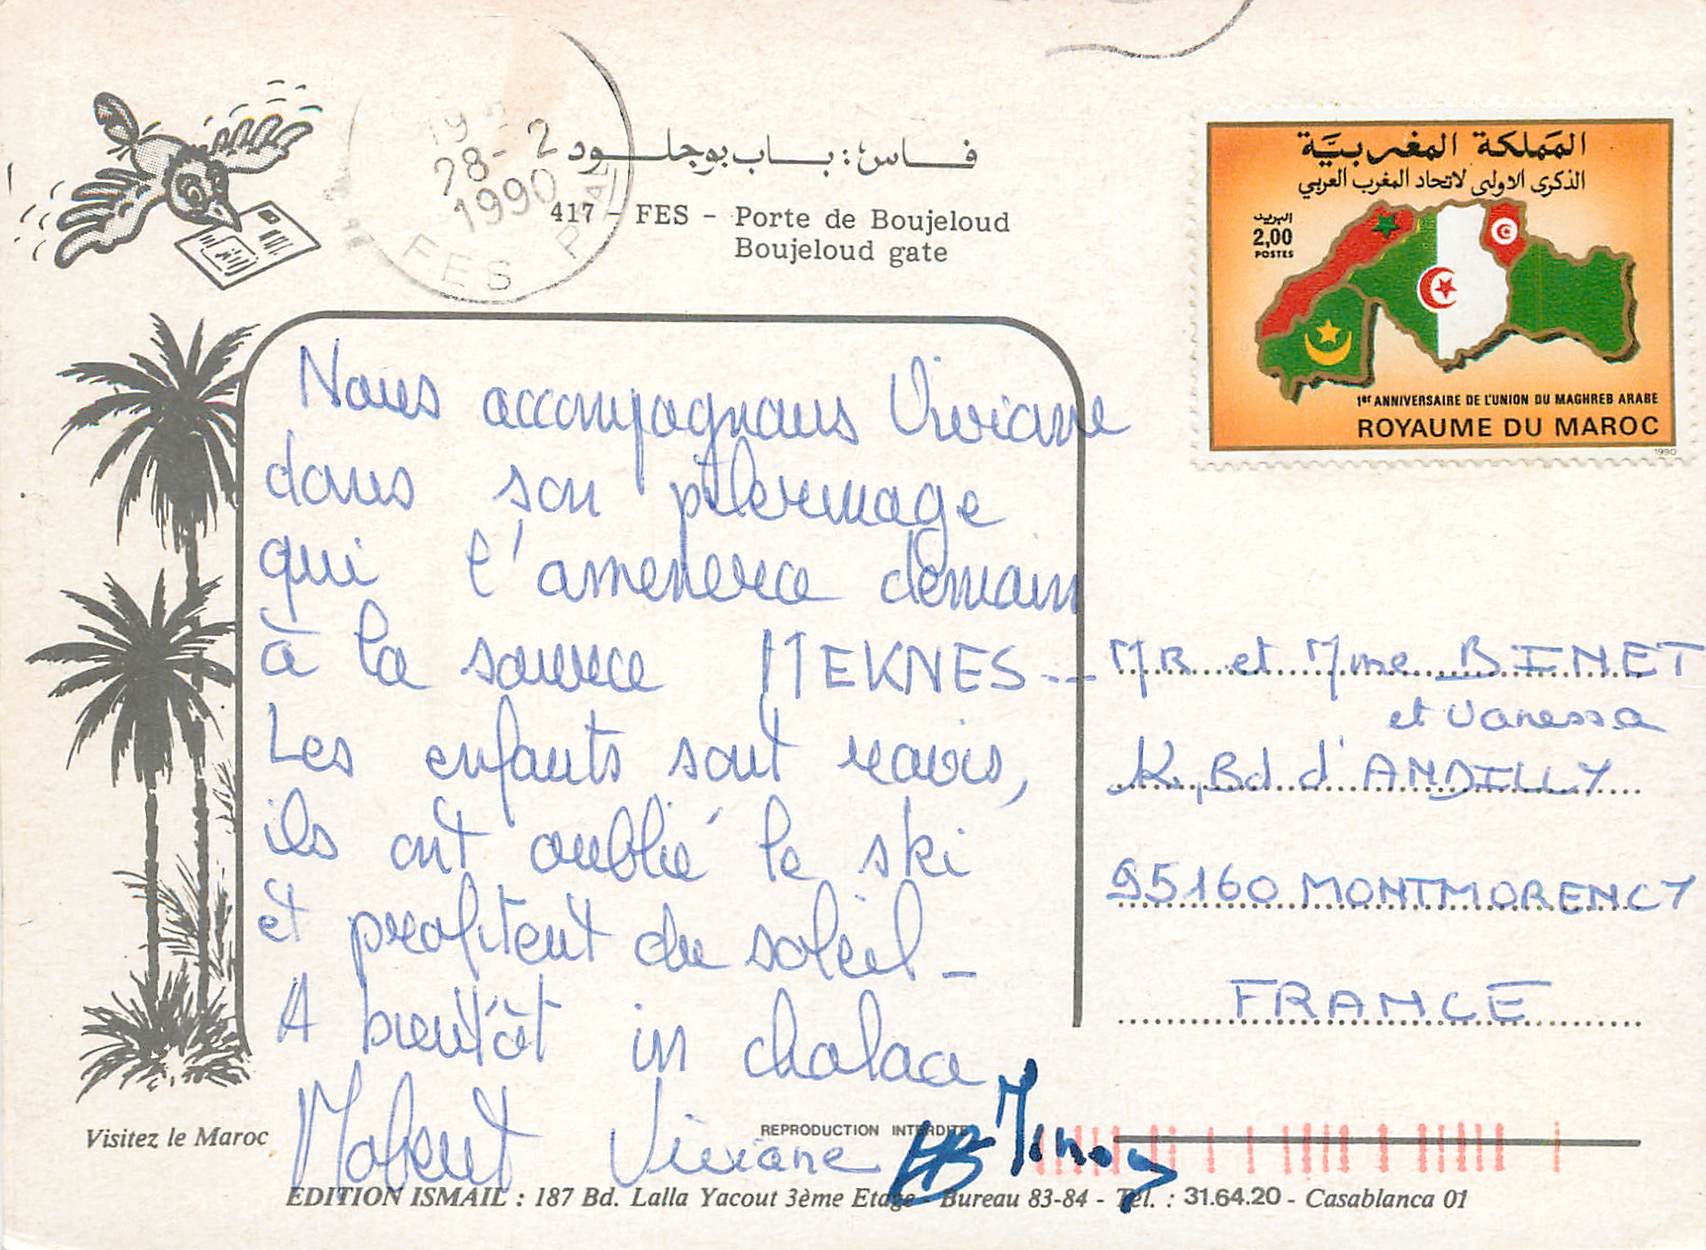 19
28-2
1990
FES
فاس: باب بوجلود
417 - FES - Porte de Boujeloud
Boujeloud gate
المملكة المغربية
الذكرى الاولى لاتحاد المغرب العربي
البريد
2,00
POSTES
1er ANNIVERSAIRE DE L'UNION DU MAGHREB ARABE
ROYAUME DU MAROC
1990
Nous accompagnons Viviane
dans son pélerinage
qui l'amenera demain
à la source MEKNES --
Les enfants sont ravis,
ils ont oublié le ski
et profitent du soleil -
A bientôt in chalaa
Viviane
MR et Mme BINET
et Vanessa
Bd d'ANDILLY
95160 MONTMORENCY
FRANCE
Visitez le Maroc
REPRODUCTION INTERDITE
EDITION ISMAIL : 187 Bd. Lalla Yacout 3ème Etage - Bureau 83-84 - Tél. : 31.64.20 - Casablanca 01